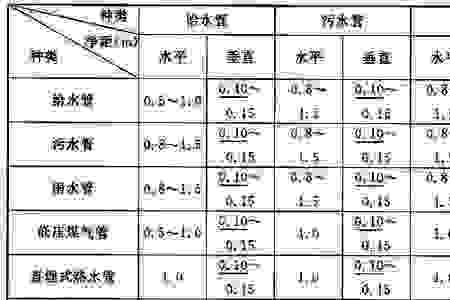 种类 给水管 污水管
净距(m)
种类 水平 垂直 水平 垂直 水平
给水管 0.5～1.0 0.10～0.15 0.8～1.5 0.10～0.15 0.8
污水管 0.8～1.5 0.10～0.15 0.8～1.5 0.10～0.15 0.8
雨水管 0.8～1.5 0.10～0.15 0.8～1.5 0.10～0.15 0.8
低压煤气管 0.5～1.0 0.10～0.15 1.0 0.10～0.15
直埋式热水管 1.0 0.10～0.15 1.0 0.10～0.15